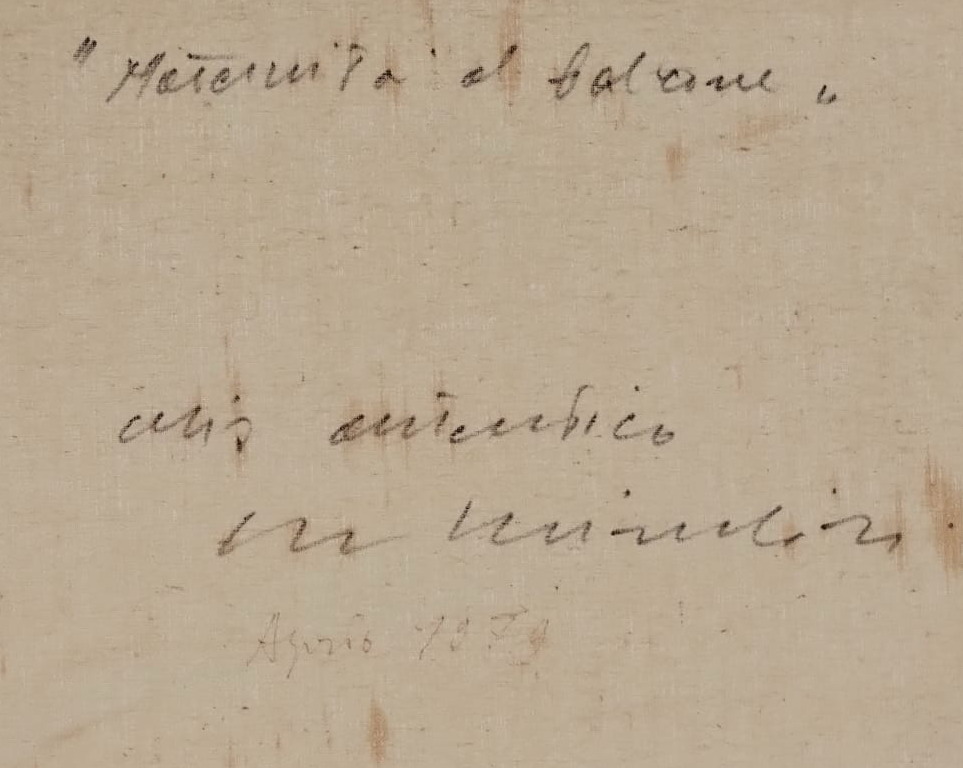 "Maternità al balcone"
olio autentico
Agosto 1979